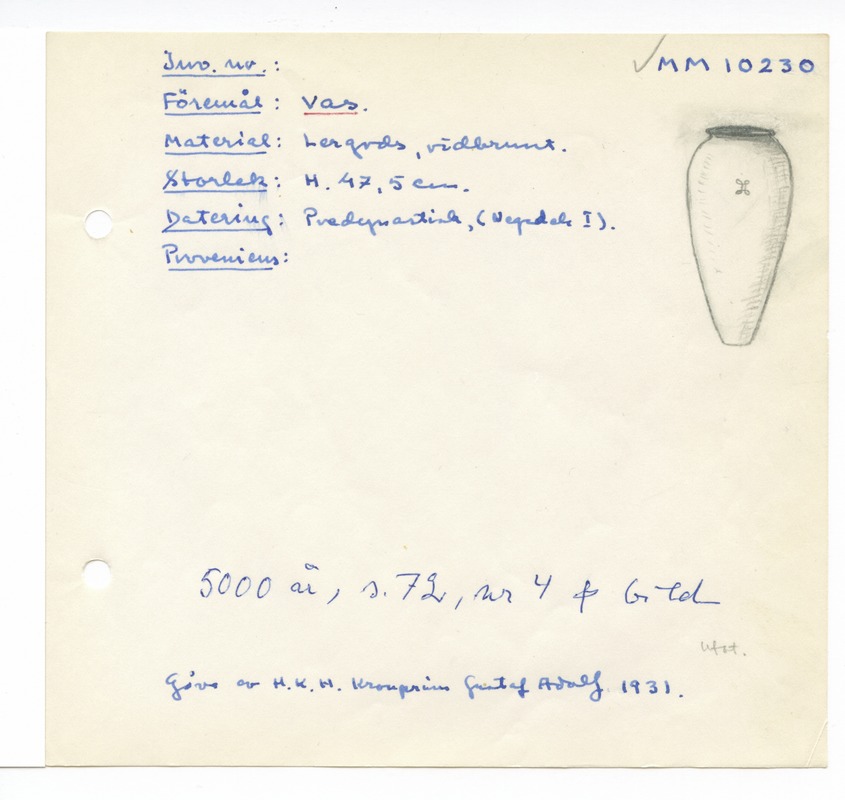 Inv. nr.:
MM 10230
Föremål: Vas.
Material: Lergods, rödbrunt.
Storlek: H. 47,5 cm.
Datering: Predynastisk, (Negadah I).
Proveniens:
5000 år, s. 72, nr 4 & bild
Gåva av H.K.H. Kronprins Gustaf Adolf 1931.